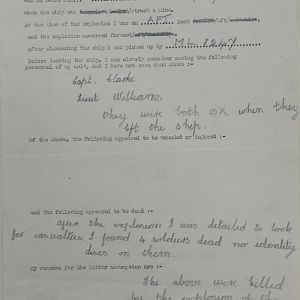 when the ship was torpedoed/bombed/struck a mine.
At the time of the explosion I was on AFT Deck
and the explosion occurred forward/
After abandoning the ship I was picked up by M.L. 1247.
Before leaving the ship, I can clearly remember seeing the following
personnel of my unit, and I have not seen them since :-
Capt. Clarke
Lieut Williams
They were both OK when they
left the ship.
Of the above, the following appeared to be wounded or injured :-
and the following appeared to be dead :-
After the explosion I was detailed to look
for casualties. I found 4 soldiers dead no identity
discs on them.
My reasons for the latter assumption are :-
The above were killed
by the explosion of the